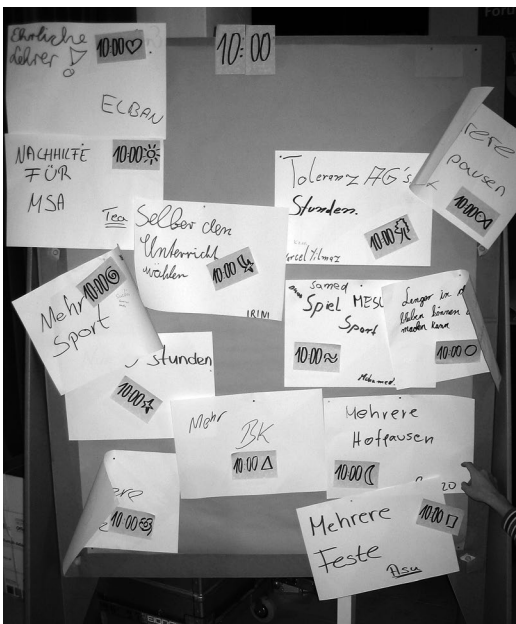 Ehrliche
Lehrer !
10:00
ELBAN
10:00
NACHHILFE
FÜR
MSA
10:00
Tea
Toleranz AG's
Stunden.
10:00
rere
pausen
10:00
Selber den
Unterricht
wählen
10:00
IRINI
Mehr
Sport
10:00
Samed
Spiel MESU
Sport
10:00
Mohamed.
Lenger in d
bleiben können
10:00
stunden
10:00
Mehr
BK
10:00
Mehrere
Hofpausen
10:00
20
ere
10:00
Mehrere
Feste
10:00
Asu